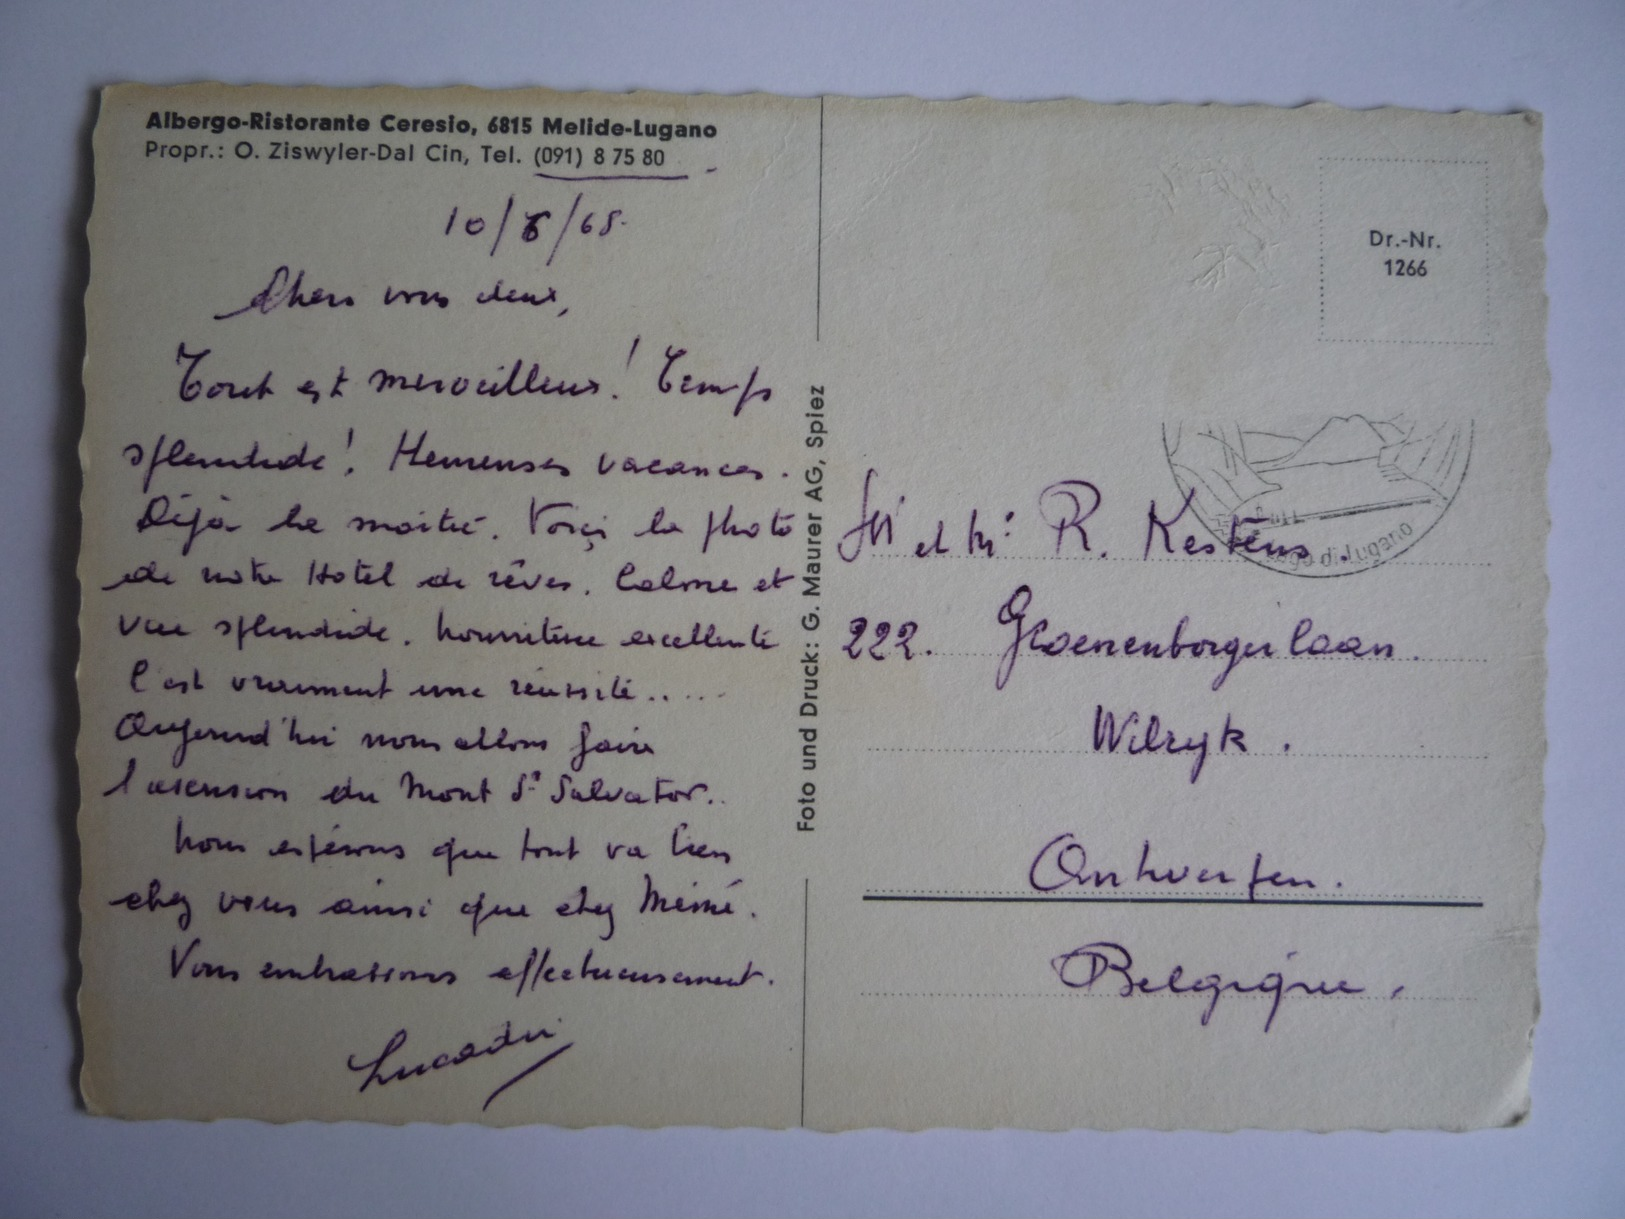 Albergo-Ristorante Ceresio, 6815 Melide-Lugano
Propr.: O. Ziswyler-Dal Cin, Tel. (091) 8 75 80
10/8/68.
Chers vous deux,
Tout est merveilleux! Temps
splendide! Heureuses vacances.
Déjà la moitié. Voici la photo
de notre Hotel de rêves. Calme et
vue splendide. nourriture excellente
C'est vraiment une réussite.....
Aujourd'hui nous allons faire
l'ascension du Mont St Salvator..
Nous espérons que tout va bien
chez vous ainsi que chez Mémé.
Vous embrassons affectueusement.
Foto und Druck: G. Maurer AG, Spiez
Dr.-Nr.
1266
Lago di Lugano
Mr et Mr R. Kestens.
222. Groenenborgerlaan.
Wilryk.
Antwerpen.
Belgique,